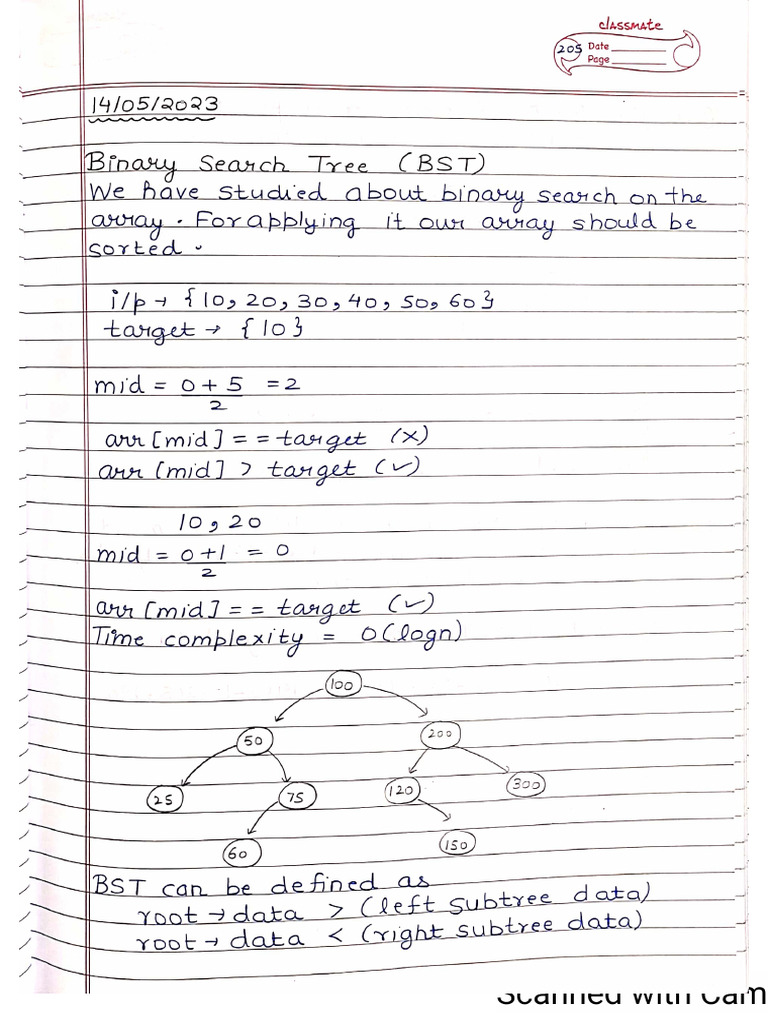 classmate
205 Date
Page
14/05/2023
Binary Search Tree (BST)
We have studied about binary search on the
array. For applying it our array should be
sorted.
i/p → {10, 20, 30, 40, 50, 60}
target → {10}
mid = 0 + 5 = 2
2
arr[mid] == target (×)
arr[mid] > target (✓)
10, 20
mid = 0 + 1 = 0
2
arr[mid] == target (✓)
Time complexity = O(logn)
100
50 200
25 75 120 300
60 150
BST can be defined as
root → data > (left subtree data)
root → data < (right subtree data)
Scanned with Cam